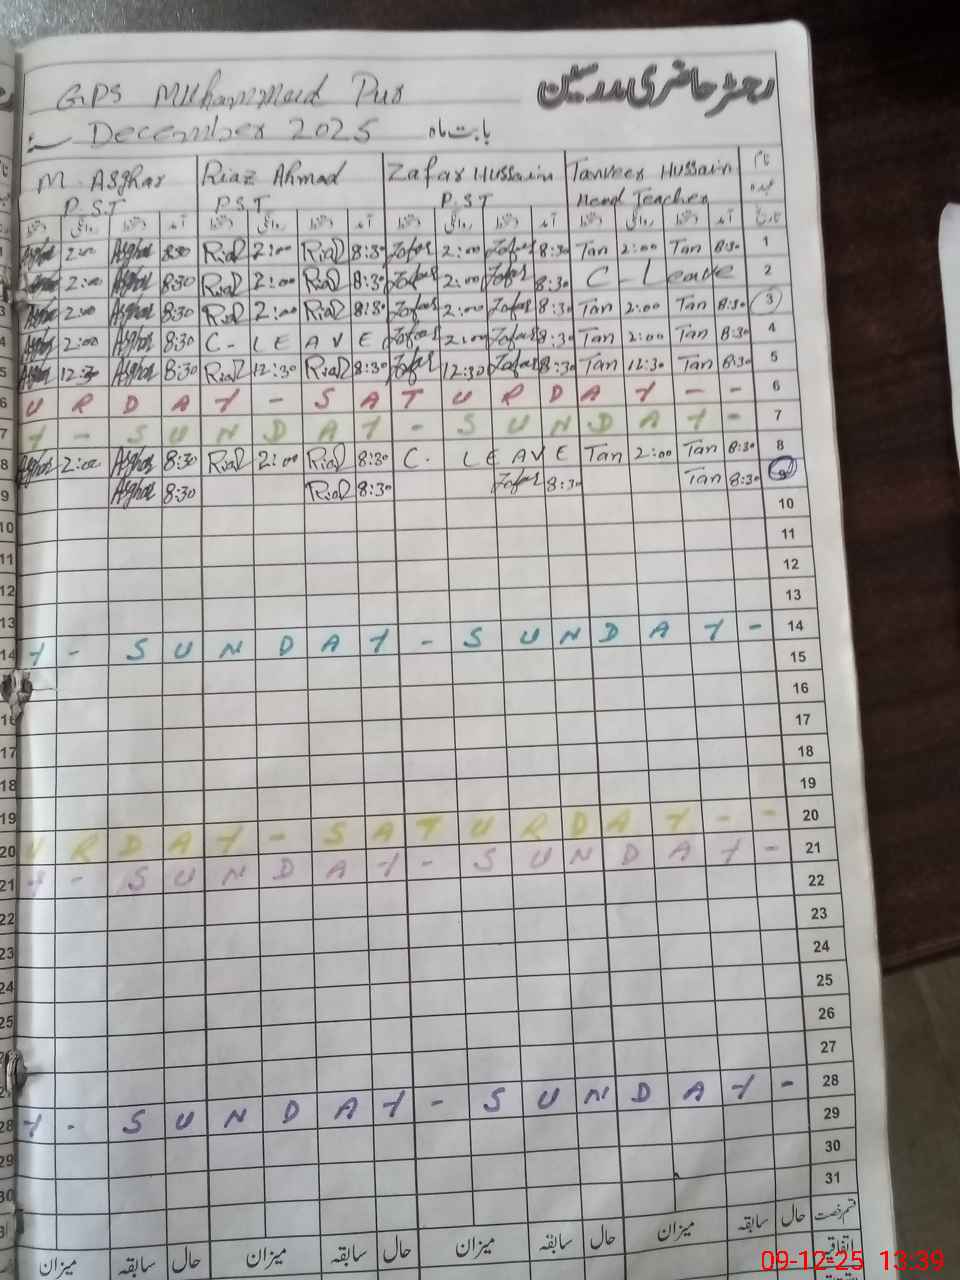 رجسٹر حاضری مدرسین
GPS Muhammad Pur
بابت ماہ December 2025
M. Asghar Riaz Ahmad Zafar Hussain Tanveer Hussain نام
P.S.T P.S.T P.S.T Head Teacher عہدہ
دستخط روانگی دستخط آمد دستخط روانگی دستخط آمد دستخط روانگی دستخط آمد دستخط روانگی دستخط آمد تاریخ
Asghar 2:00 Asghar 8:30 Riaz 2:00 Riaz 8:30 Zafar 2:00 Zafar 8:30 Tan 2:00 Tan 8:30 1
2:00 Asghar 8:30 Riaz 2:00 Riaz 8:30 Zafar 2:00 Zafar 8:30 C - Leave 2
2:00 Asghar 8:30 Riaz 2:00 Riaz 8:30 Zafar 2:00 Zafar 8:30 Tan 2:00 Tan 8:30 3
Asghar 2:00 Asghar 8:30 C - LEAVE Zafar 2:00 Zafar 8:30 Tan 2:00 Tan 8:30 4
12:30 Asghar 8:30 Riaz 12:30 Riaz 8:30 Zafar 12:30 Zafar 8:30 Tan 12:30 Tan 8:30 5
URDAY - SATURDAY - - 6
Y - SUNDAY - SUNDAY - 7
Asghar 2:00 Asghar 8:30 Riaz 2:00 Riaz 8:30 C. LEAVE Tan 2:00 Tan 8:30 8
Asghar 8:30 Riaz 8:30 Zafar 8:30 Tan 8:30 9
10
11
12
13
Y - SUNDAY - SUNDAY - 14
15
16
17
18
19
URDAY - SATURDAY - - 20
Y - SUNDAY - SUNDAY - 21
22
23
24
25
26
27
Y - SUNDAY - SUNDAY - 28
29
30
31
میزان سابقہ حال میزان سابقہ حال میزان سابقہ حال میزان سابقہ حال قسم رخصت
اتفاقیہ
09-12-25 13:39